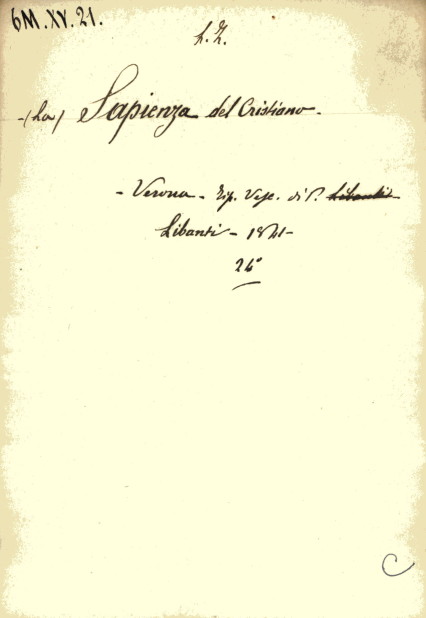 6M.XV.21.
L. Z.
-(La) Sapienza del Cristiano.
- Verona - Tip. Vesc. di P. Libanti
Libanti - 1841-
26°
C